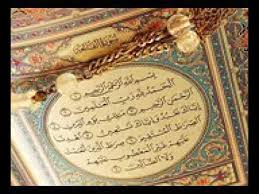 سورة الفاتحة
بسم الله الرحمن الرحيم
الحمد لله رب العالمين
الرحمن الرحيم ملك يوم الدين
إياك نعبد وإياك نستعين اهدنا
الصراط المستقيم صراط الذين
أنعمت عليهم غير المغضوب عليهم
ولا الضالين